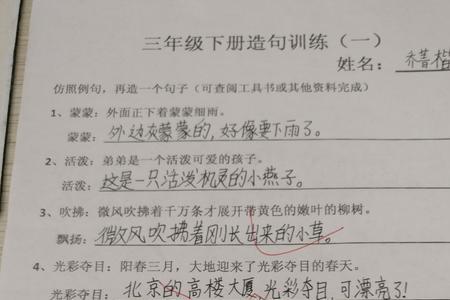 三年级下册造句训练（一）
姓名：
仿照例句，再造一个句子（可查阅工具书或其他资料完成）
1、蒙蒙：外面正下着蒙蒙细雨。
蒙蒙：外边灰蒙蒙的，好像要下雨了。
2、活泼：弟弟是一个活泼可爱的孩子。
活泼：这是一只活泼机灵的小燕子。
3、吹拂：微风吹拂着千万条才展开带黄色的嫩叶的柳树。
飘扬：微风吹拂着刚长出来的小草。
4、光彩夺目：阳春三月，大地迎来了光彩夺目的春天。
光彩夺目：北京的高楼大厦光彩夺目，可漂亮了！